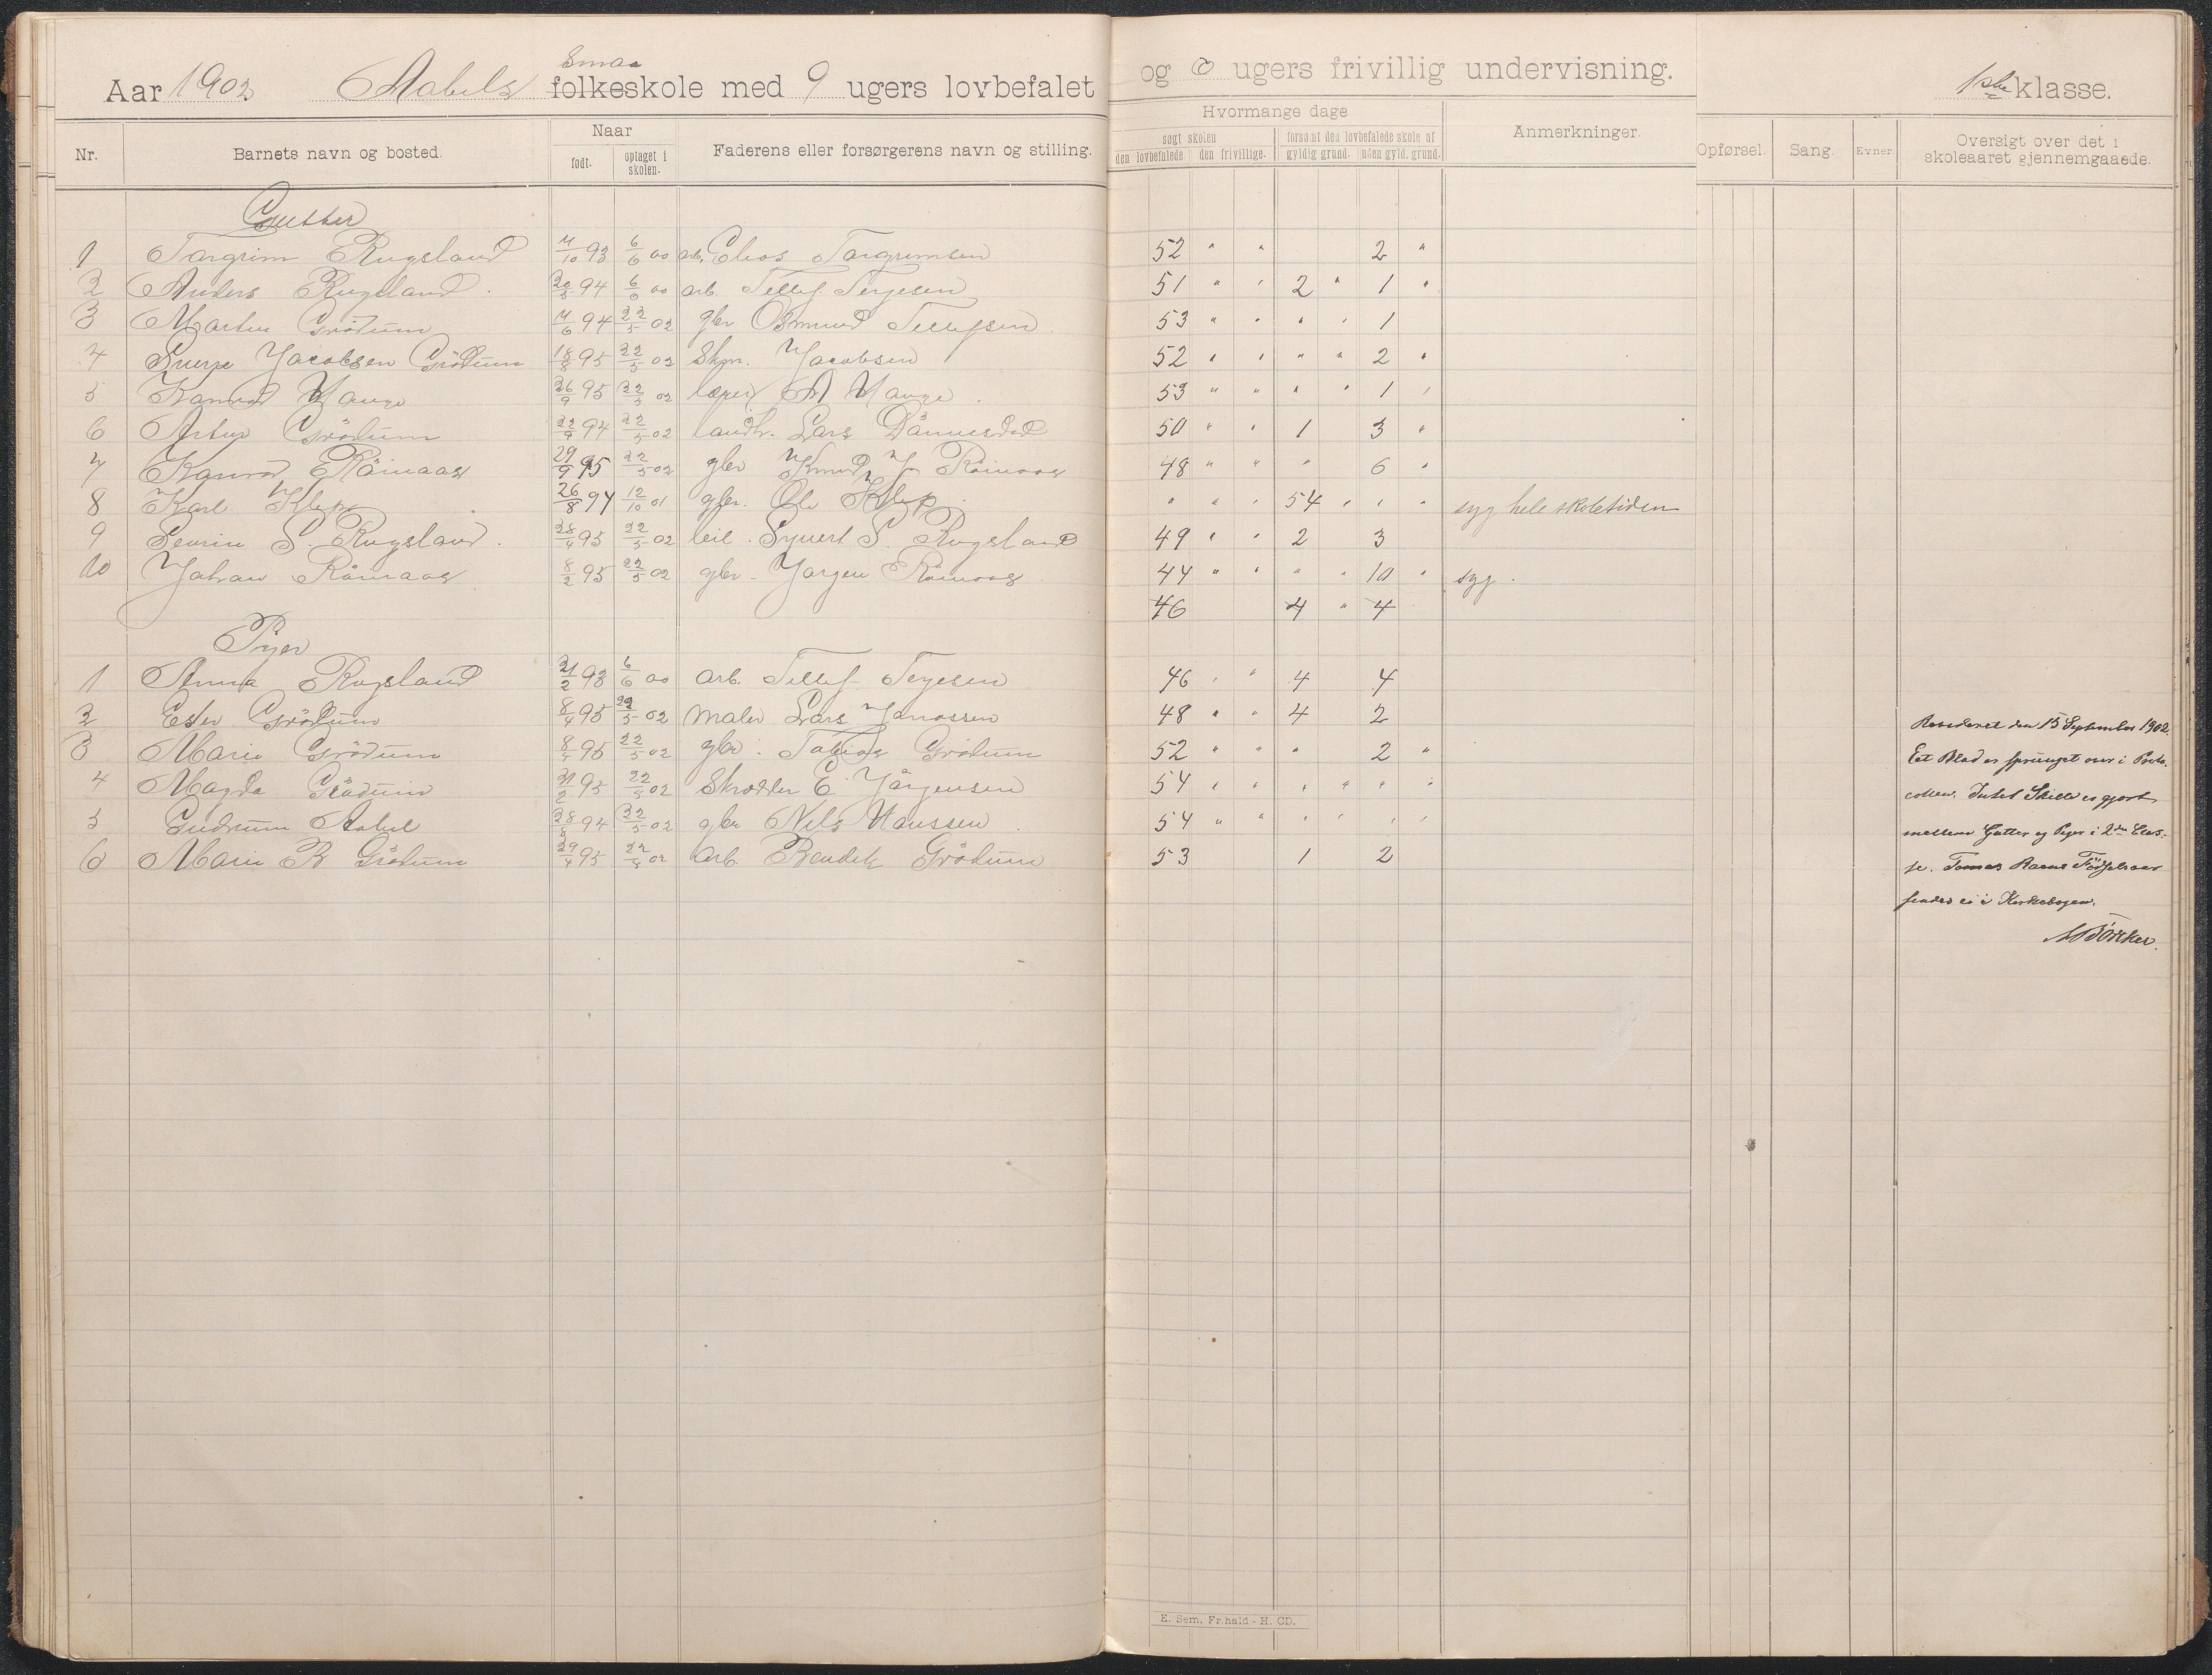 Aar 1902 Aabels Smaa folkeskole med 9 ugers lovbefalet og 0 ugers frivillig undervisning. 1ste klasse.
Nr. Barnets navn og bosted. Naar født. optaget i skolen. Faderens eller forsørgerens navn og stilling. Hvormange dage søgt skolen den lovbefalede. den frivillige. forsømt den lovbefalede skole af gyldig grund. uden gyld. grund. Anmerkninger. Opførsel. Sang. Evner. Oversigt over det i skoleaaret gjennemgaaede.
Gutter
1 Targrim Rugsland 7/10 93 6/6 00 arb. Elias Targrimsen 52 " " 2 "
2 Anders Rugsland 20/3 94 6/6 00 arb. Tellef Terjesen 51 " " 2 " 1 "
3 Martin Grödum 7/6 94 22/5 02 gbr Osmund Tellefsen 53 " " " " 1
4 Sverre Jacobsen Grödum 18/8 95 22/5 02 Skpr. Jacobsen 52 " " " " 2 "
5 Hauge 26/9 95 22/5 02 lærer A Hauge 53 " " " " 1 "
6 Artur Grödum 22/9 94 22/5 02 landh. Lars 50 " " 1 3 "
7 29/9 95 22/5 02 gbr Knud J 48 " " " 6 "
8 Karl Klep 26/8 94 12/10 01 gbr. Ole Klep " " " 54 " " " syg hele skoletiden
9 Severin S. Rugsland 28/4 95 22/5 02 leil. Syvert S. Rugsland 49 " " 2 3
10 Johan Råmaas 8/2 95 22/5 02 gbr. Jørgen Råmaas 44 " " " " 10 " syg.
46 4 " 4
Piger
1 Anna Rugsland 21/2 93 6/6 00 arb. Tellef Terjesen 46 " " 4 4
2 Ester Grödum 8/4 95 22/5 02 maler Lars 48 " " 4 2
3 Marie Grödum 8/4 95 22/5 02 gbr. Tobias Grödum 52 " " " 2 "
4 Magda Grödum 21/2 95 22/5 02 Skrædder E Jørgensen 54 " " " " " "
5 Gudrun Aabel 28/8 94 22/5 02 gbr Nils Hanssen 54 " " " " " "
6 Marie B Grödum 29/4 95 22/5 02 arb. Bendik Grödum 53 1 2
Revideret den 15 September 1902.
Eet Blad er sprunget over i Proto-
collen. Intet Skille er gjort
mellem Gutter og Piger i 2den Clas-
se. Födselsaar
findes ei i Kirkebogen.
E. Sem, Fr.hald - H. CD.